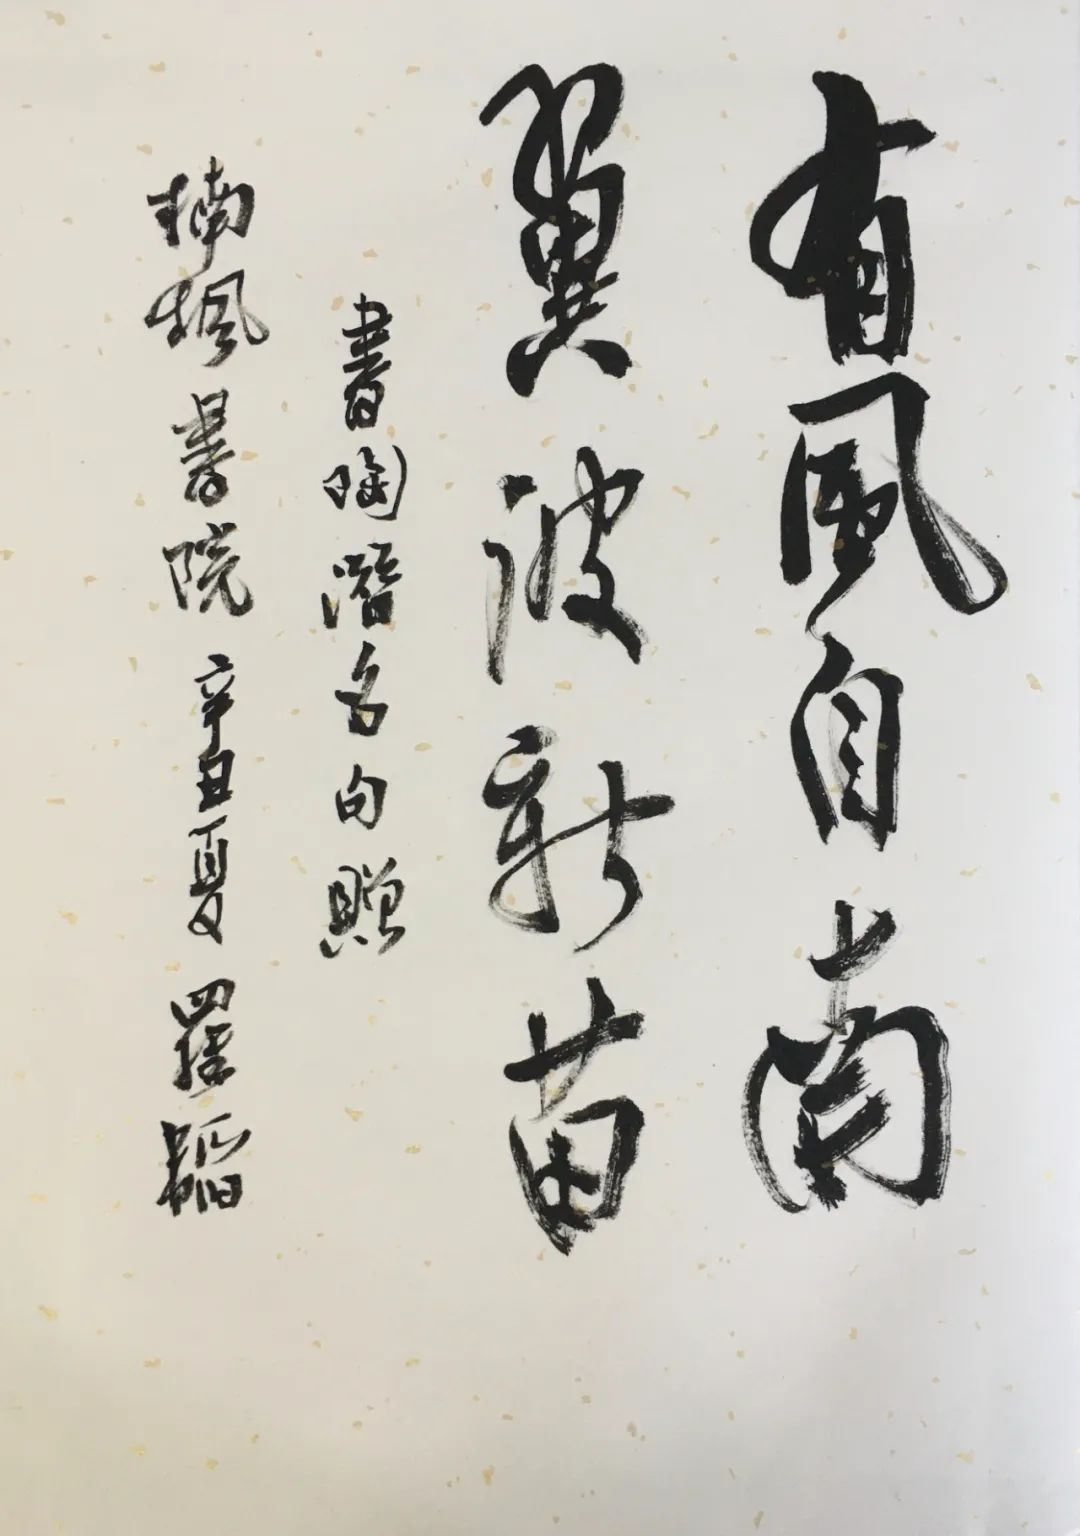 有風自南
翼彼新苗
書陶潛名句贈
楠楓書院 辛丑夏 羅韬